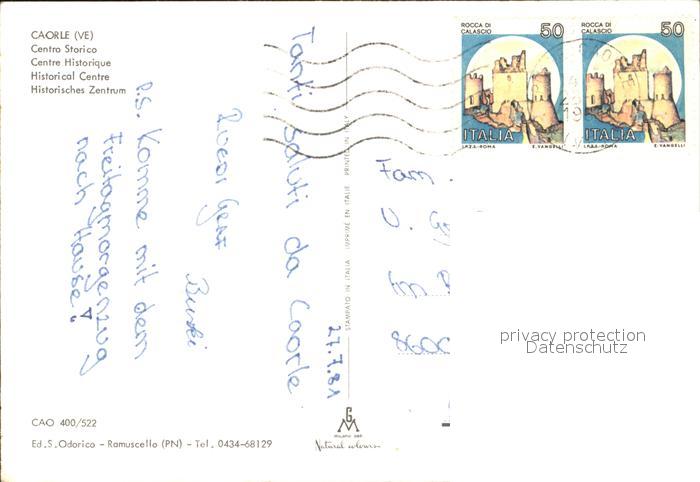 CAORLE (VE)
Centro Storico
Centre Historique
Historical Centre
Historisches Zentrum
ROCCA DI
CALASCIO
50
ITALIA
I.P.Z.S.-ROMA E. VANGELLI
ROCCA DI
CALASCIO
50
ITALIA
I.P.Z.S.-ROMA E. VANGELLI
27.7.81
Tanti saluti da Caorle
P.S. Komme mit dem
Freitagmorgenzug
nach Hause!
STAMPATO IN ITALIA IMPRIMÉ EN ITALIE PRINTED IN ITALY
Fam.
8600
privacy protection
Datenschutz
CAO 400/522
Ed.S.Odorico - Ramuscello (PN) - Tel. 0434-68129
GM
MILANO
Natural colours